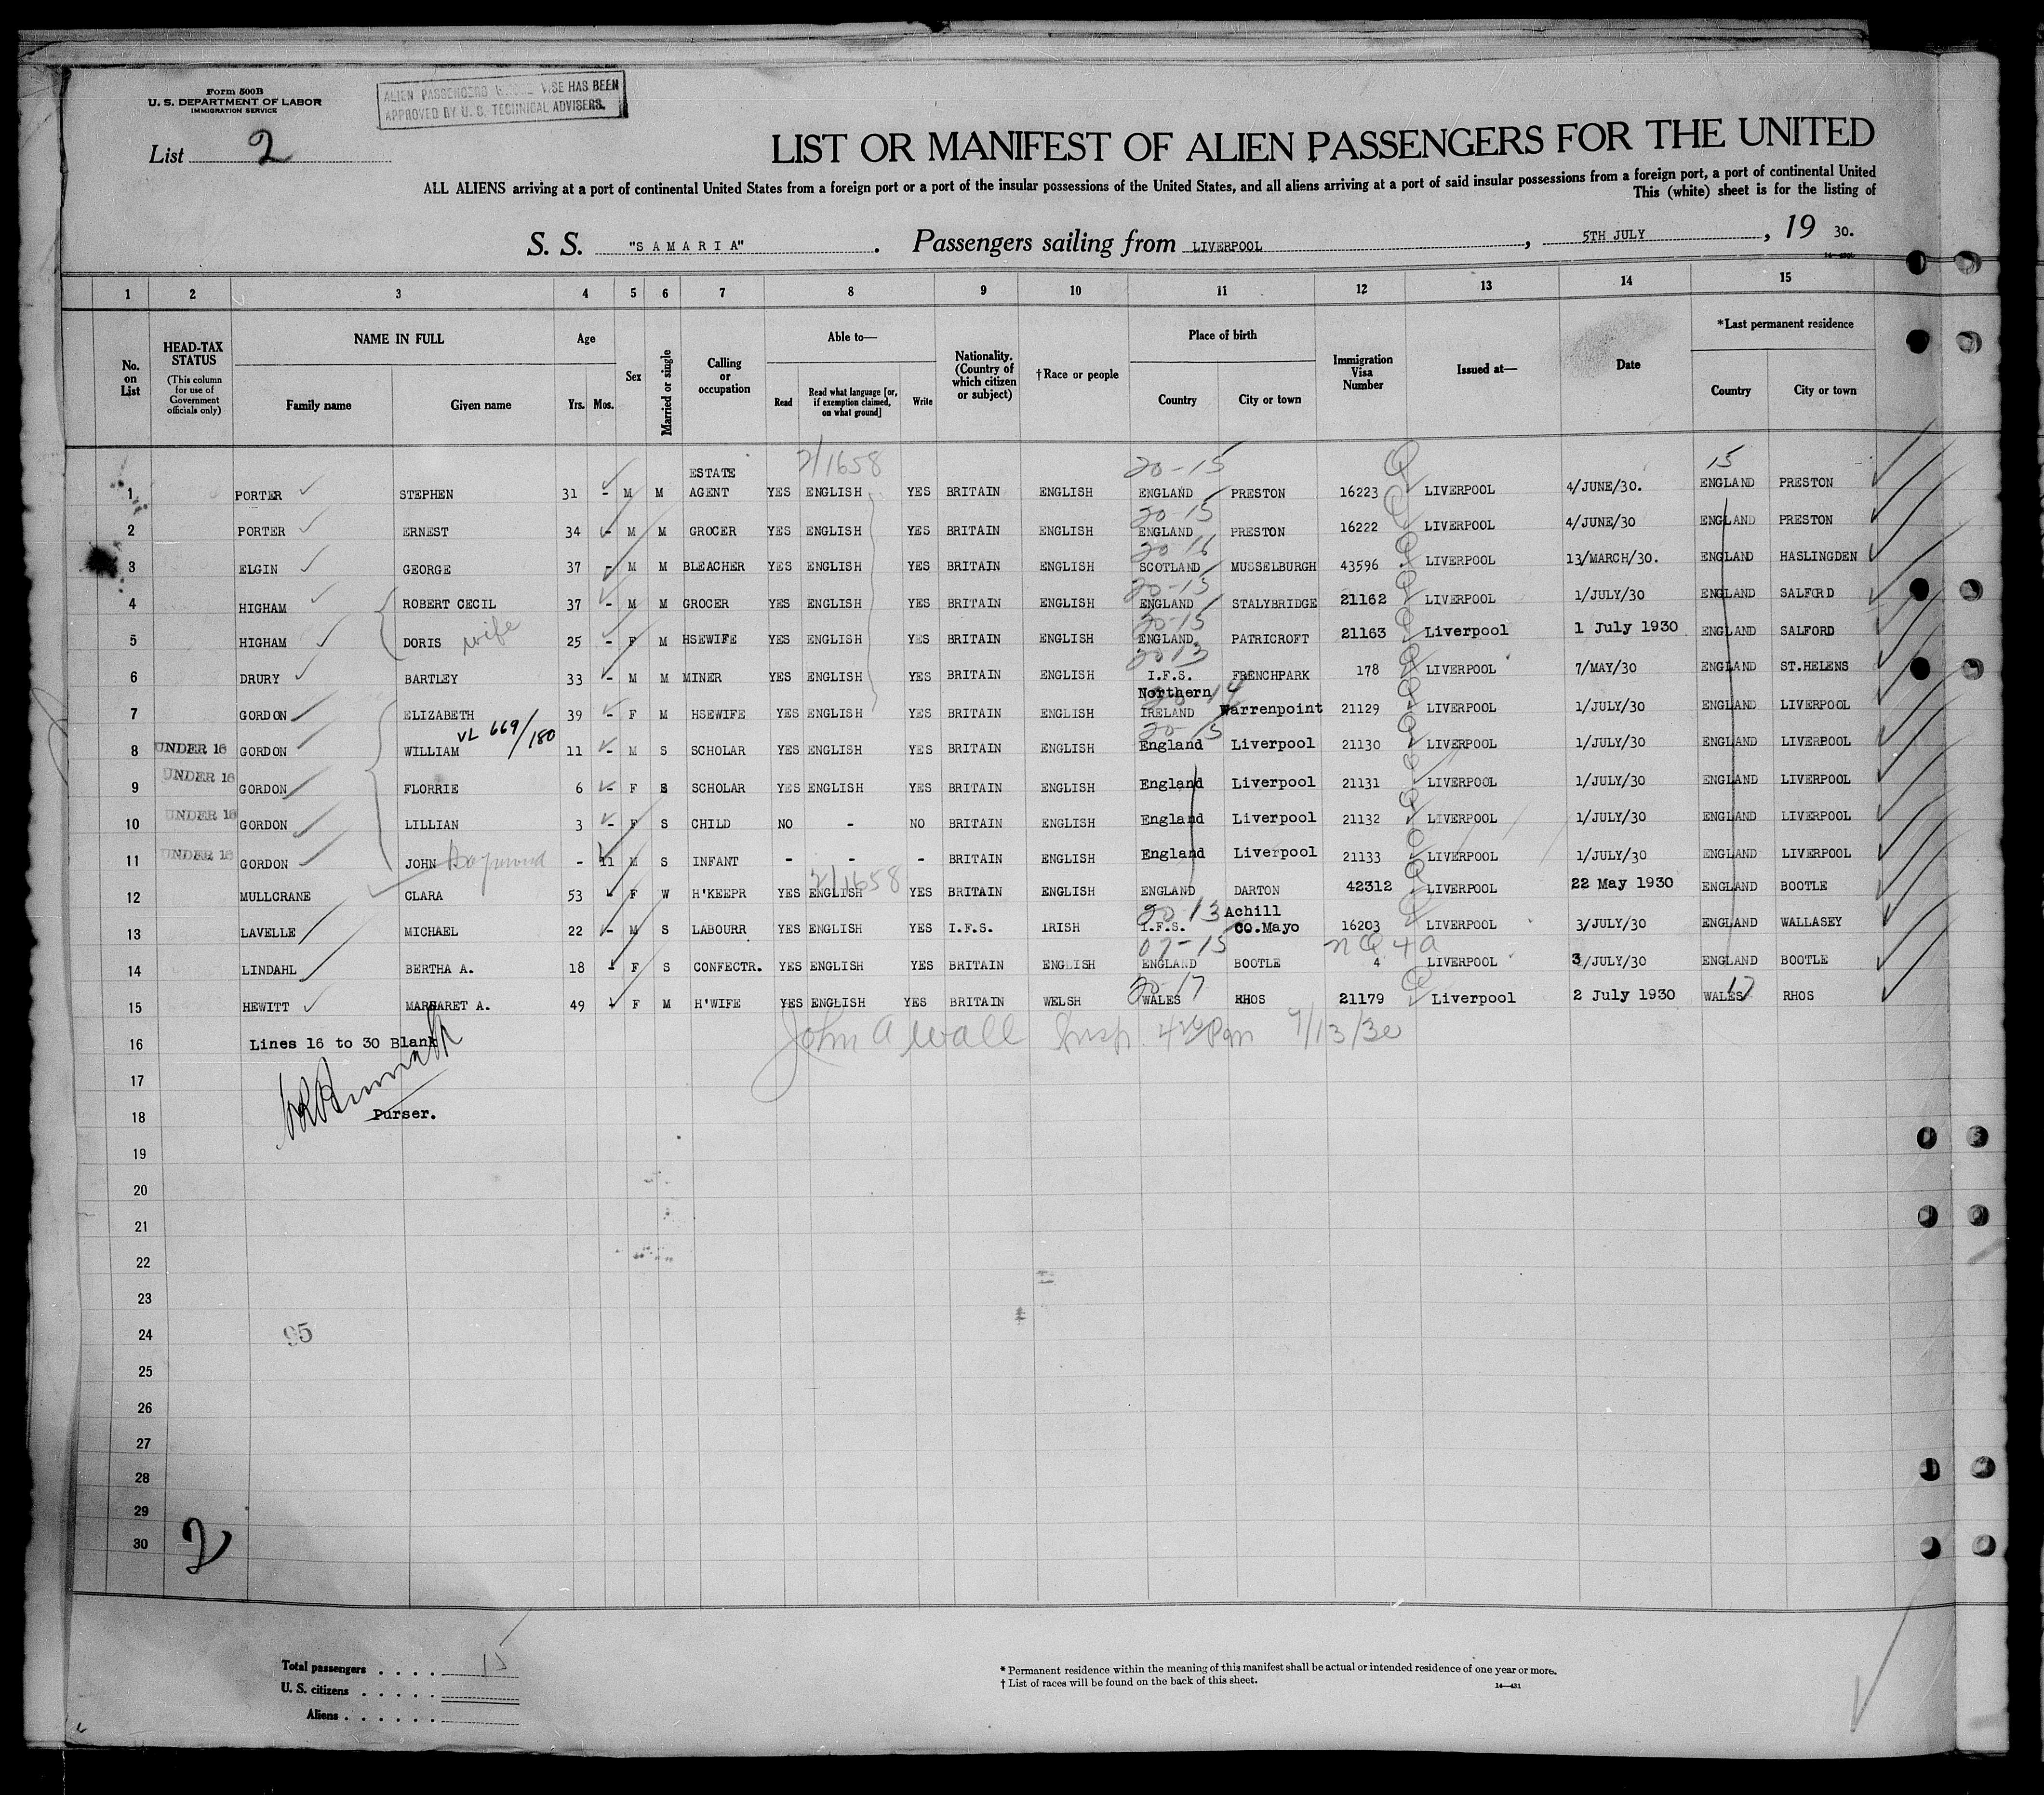 Form 500B
U. S. DEPARTMENT OF LABOR
IMMIGRATION SERVICE
ALIEN PASSENGERS VISE HAS BEEN
APPROVED BY U. S. TECHNICAL ADVISERS.
List 2
LIST OR MANIFEST OF ALIEN PASSENGERS FOR THE UNITED
ALL ALIENS arriving at a port of continental United States from a foreign port or a port of the insular possessions of the United States, and all aliens arriving at a port of said insular possessions from a foreign port, a port of continental United
This (white) sheet is for the listing of
S. S. "SAMARIA". Passengers sailing from LIVERPOOL, 5TH JULY, 19 30.
1 2 3 4 5 6 7 8 9 10 11 12 13 14 15
No. on List
HEAD-TAX STATUS (This column for use of Government officials only)
NAME IN FULL Family name Given name
Age Yrs. Mos.
Sex
Married or single
Calling or occupation
Able to— Read Read what language [or, if exemption claimed, on what ground] Write
Nationality. (Country of which citizen or subject)
†Race or people
Place of birth Country City or town
Immigration Visa Number
Issued at—
Date
*Last permanent residence Country City or town
2/1658 20-15 Q 15
1 PORTER STEPHEN 31 - M M ESTATE AGENT YES ENGLISH YES BRITAIN ENGLISH ENGLAND PRESTON 16223 LIVERPOOL 4/JUNE/30. ENGLAND PRESTON
20-15
2 PORTER ERNEST 34 - M M GROCER YES ENGLISH YES BRITAIN ENGLISH ENGLAND PRESTON 16222 LIVERPOOL 4/JUNE/30 ENGLAND PRESTON
20 16
3 ELGIN GEORGE 37 - M M BLEACHER YES ENGLISH YES BRITAIN ENGLISH SCOTLAND MUSSELBURGH 43596 LIVERPOOL 13/MARCH/30. ENGLAND HASLINGDEN
20-15
4 HIGHAM ROBERT CECIL 37 - M M GROCER YES ENGLISH YES BRITAIN ENGLISH ENGLAND STALYBRIDGE 21162 LIVERPOOL 1/JULY/30 ENGLAND SALFORD
20-15
5 HIGHAM DORIS wife 25 - F M HSEWIFE YES ENGLISH YES BRITAIN ENGLISH ENGLAND. PATRICROFT 21163 Liverpool 1 July 1930 ENGLAND SALFORD
20 13
6 DRURY BARTLEY 33 - M M MINER YES ENGLISH YES BRITAIN ENGLISH I.F.S. FRENCHPARK 178 LIVERPOOL 7/MAY/30 ENGLAND ST.HELENS
7 GORDON ELIZABETH 39 - F M HSEWIFE YES ENGLISH YES BRITAIN ENGLISH Northern IRELAND Warrenpoint 21129 LIVERPOOL 1/JULY/30 ENGLAND LIVERPOOL
VL 669/180 20-15
8 UNDER 16 GORDON WILLIAM 11 - M S SCHOLAR YES ENGLISH YES BRITAIN ENGLISH England Liverpool 21130 LIVERPOOL 1/JULY/30 ENGLAND LIVERPOOL
9 UNDER 16 GORDON FLORRIE 6 - F S SCHOLAR YES ENGLISH YES BRITAIN ENGLISH England Liverpool 21131 LIVERPOOL 1/JULY/30 ENGLAND LIVERPOOL
10 UNDER 16 GORDON LILLIAN 3 - F S CHILD NO - NO BRITAIN ENGLISH England Liverpool 21132 LIVERPOOL 1/JULY/30 ENGLAND LIVERPOOL
11 UNDER 16 GORDON JOHN - 11 M S INFANT - - - BRITAIN ENGLISH England Liverpool 21133 LIVERPOOL 1/JULY/30 ENGLAND LIVERPOOL
2/1658
12 MULLCRANE CLARA 53 - F W H'KEEPR YES ENGLISH YES BRITAIN ENGLISH ENGLAND DARTON 42312 LIVERPOOL 22 May 1930 ENGLAND BOOTLE
20 13
13 LAVELLE MICHAEL 22 - M S LABOURR YES ENGLISH YES I.F.S. IRISH I.F.S. Achill CO.Mayo 16203 LIVERPOOL 3/JULY/30 ENGLAND WALLASEY
07-15 n Q 4a
14 LINDAHL BERTHA A. 18 - F S CONFECTR. YES ENGLISH YES BRITAIN ENGLISH ENGLAND BOOTLE 4 LIVERPOOL 3/JULY/30 ENGLAND BOOTLE
20-17 17
15 HEWITT MARGARET A. 49 - F M H'WIFE YES ENGLISH YES BRITAIN WELSH WALES RHOS 21179 Liverpool 2 July 1930 WALES RHOS
John A Wall Insp. 7/13/30
16 Lines 16 to 30 Blank
17
18 Purser.
19
20
21
22
23
24
95
25
26
27
28
29
30
2
Total passengers . . . . 15
U. S. citizens . . . . .
Aliens . . . . . .
* Permanent residence within the meaning of this manifest shall be actual or intended residence of one year or more.
† List of races will be found on the back of this sheet.
14—431